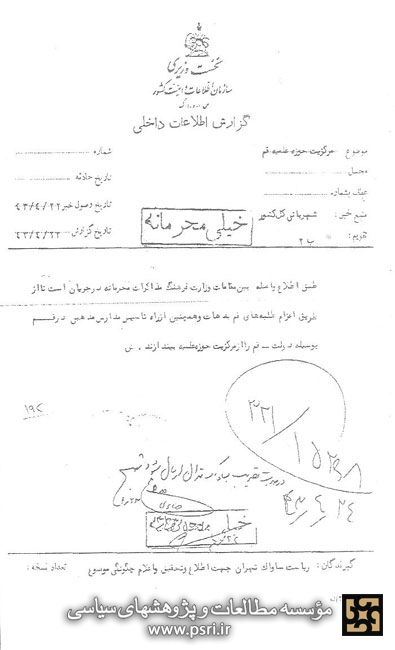 نخست وزیری
سازمان اطلاعات و امنیت کشور
س.ا.و.ا.ک
گزارش اطلاعات داخلی
موضوع مرکزیت حوزه علمیه قم
شماره
محل
تاریخ حادثه
عطف بشماره
تاریخ وصول خبر ۴۳/۴/۲۲
منبع خبر: شهربانی کل کشور
تاریخ گزارش ۴۳/۴/۲۳
تقویم: ب ۲
خیلی محرمانه
طبق اطلاع واصله بین مقامات وزارت فرهنگ مذاکرات محرمانه در جریان است تا از
طریق اعزام طلبه‌های قم بدهات و همچنین از راه تاسیس مدارس مذهبی در قم
بوسیله دولت قم را از مرکزیت حوزه علمیه بیندازند.
۳۲۱
گیرندگان: ریاست ساواک تهران جهت اطلاع و تحقیق و اعلام چگونگی موضوع
تعداد نسخه:
مؤسسه مطالعات و پژوهشهای سیاسی
www.psri.ir